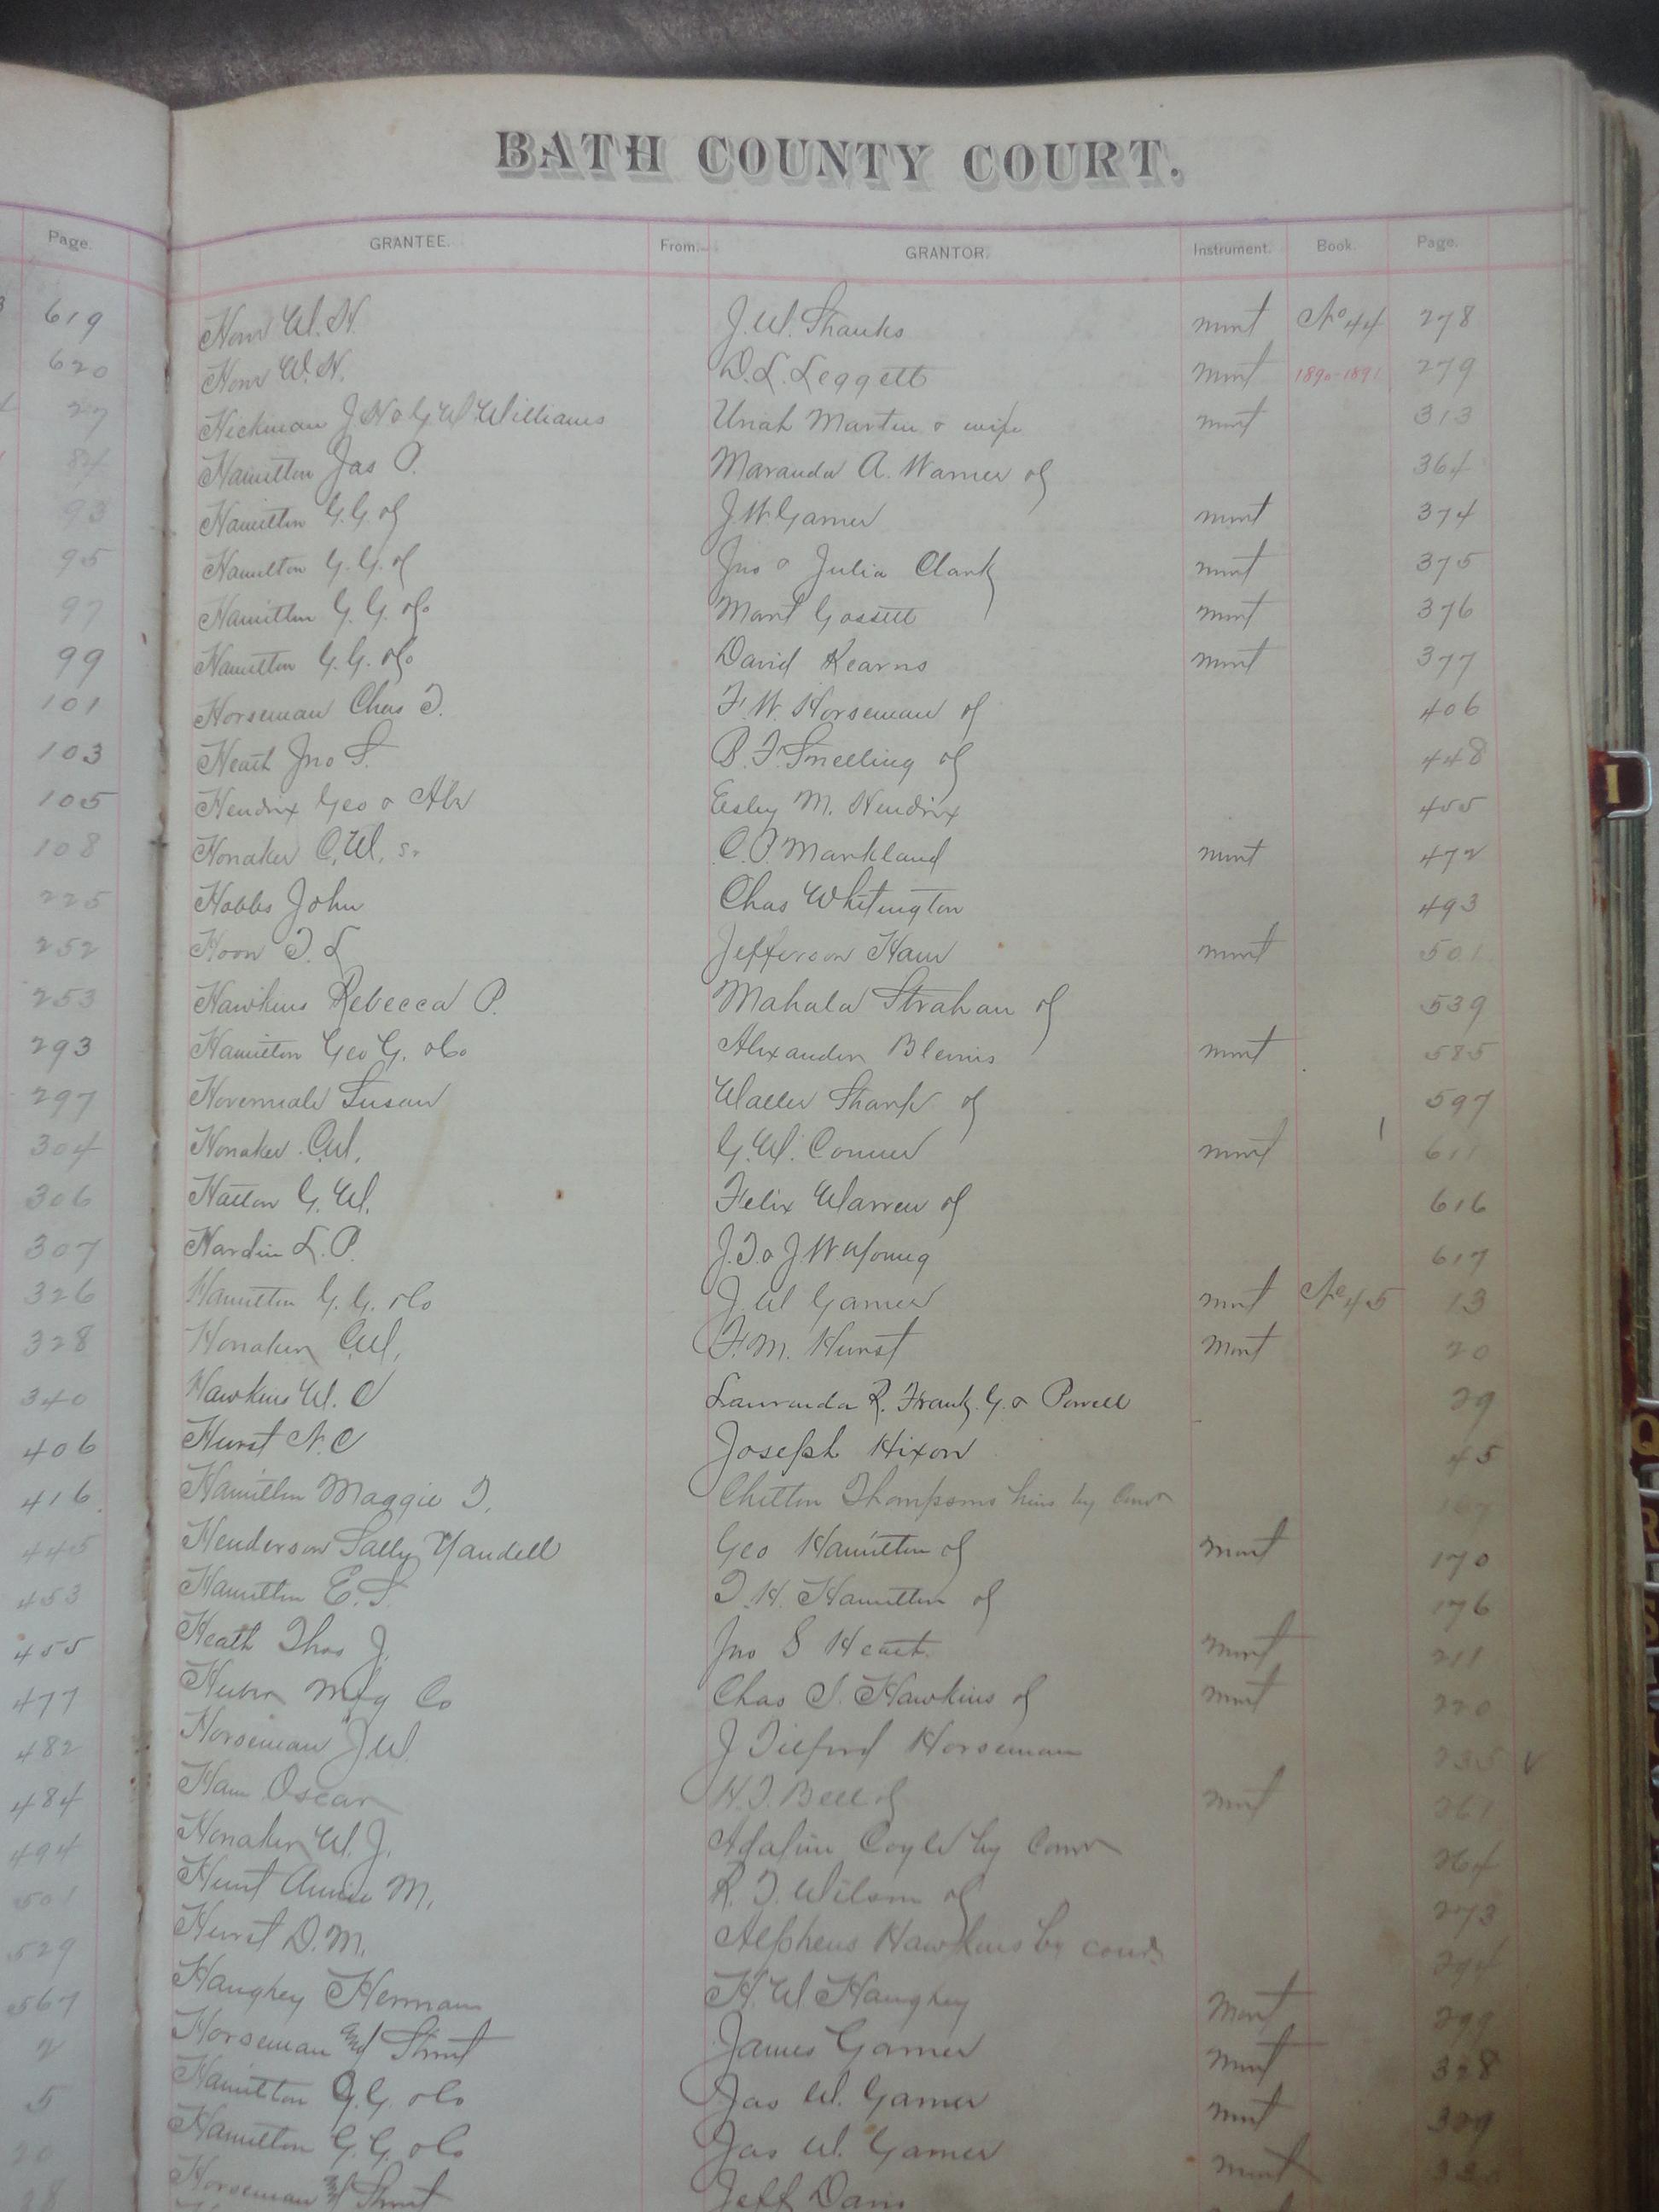 BATH COUNTY COURT.
Page. GRANTEE. From. GRANTOR. Instrument. Book. Page.
619 W. H. J. W. Shanks mort No 44 278
620 W. H. D. L. Leggett mort 1890-1891 279
27 Hickman J N & G W Williams Uriah Martin & wife mort 313
84 Hamilton Jas P. Maranda A. Warner of 364
93 Hamilton G. G. of J. W. Garner mort 374
95 Hamilton G. G. of Jno & Julia Clark mort 375
97 Hamilton G. G. &Co Mart Gossett mort 376
99 Hamilton G. G. &Co David Kearns mort 377
101 Horseman Chas T. F. W. Horseman of 406
103 Heath Jno S. B. F. Snelling of 448
105 Hendrix Geo & Esley M. Hendrix 455
108 Honaker C. W. Sr C. P. Markland mort 472
225 Hobbs John Chas Whitington 493
252 Hoon T. L Jefferson Ham mort 501
253 Hawkins Rebecca P. Mahala Strahan of 539
293 Hamilton Geo G. &Co Alexander Blevins mort 585
297 Susan Sharp of 597
304 Honaker C.W. G. W. Conner mort 611
306 Hatton G. W. Felix Warren of 616
307 Hardin L. P. J. T. & J. W. Young 617
326 Hamilton G. G. &Co J. W Garner mort No 45 13
328 Honaker C.W. F. M. Hurst Mort 20
340 Hawkins W. C R. Frank G. & Powell 29
406 Hurst N. C Joseph Hixon 45
416 Hamilton Maggie T. Chilton Thompsons heirs by Comr 167
445 Henderson Sally Yandell Geo Hamilton of Mort 170
453 Hamilton E. S. T. H. Hamilton of 176
455 Heath Thos J. Jno S Heath Mort 211
477 Huber Mfg Co Chas T. Hawkins of Mort 220
482 Horseman J W. J Tilford Horseman 235 v
484 Ham Oscar H. T. Bell of mort 261
494 Honaker W. J. Coyle by Comr 264
501 Hunt Annie M. R. T. Wilson of 273
529 Hurst D. M. Alpheus Hawkins by 294
567 Haughey Herman H. W Haughey Mort 299
2 Horseman James Garner Mort 328
5 Hamilton G. G. &Co Jas W. Garner mort 329
20 Hamilton G. G. &Co Jas W. Garner mort
28 Horseman Jeff Davis